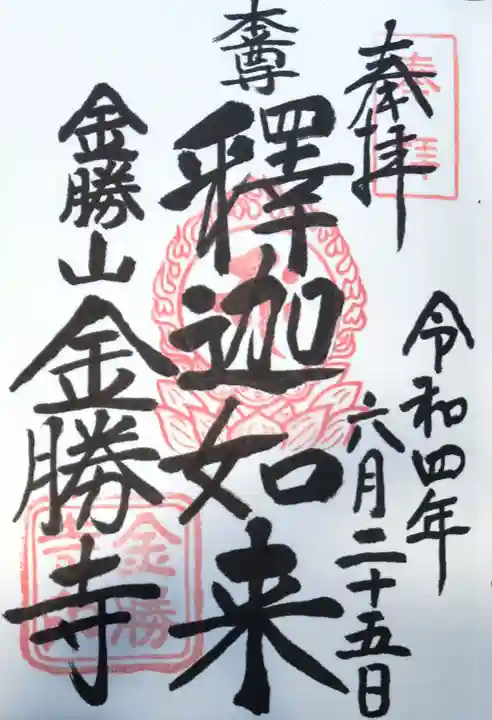 奉拝
奉拝
令和四年
六月二十五日
本尊
釋迦如来
金勝山
金勝寺